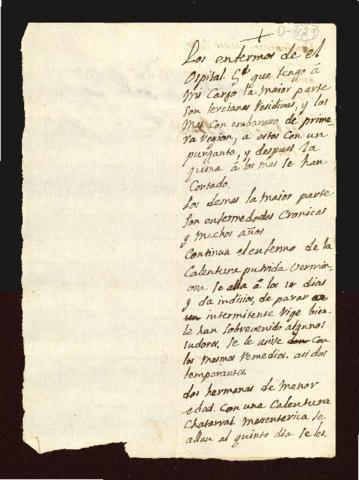 D-429
Los enfermos de el
Ospital Gl que tengo á
mi Cargo la maior parte
son tercianas residivas, y los
mas con embaraso de prime
ra region, a estos con un
purgante, y despues la
quina á los mas se han
Cortado.
Los demas la maior parte
son enfermedades Cronicas
y muchos años
Continua el enfermo de la
Calentura putrida vermin
osa se alla á los 10 dias
y da indisios, de parar
intermitente sige bien
le han sobrevenido algunos
sudores, se le asiste con
los mesmos remedios. asidos
temperantes.
dos hermanas de menor
edad. con una Calentura
Chatarral mesenterica se
allan al quinto dia se les